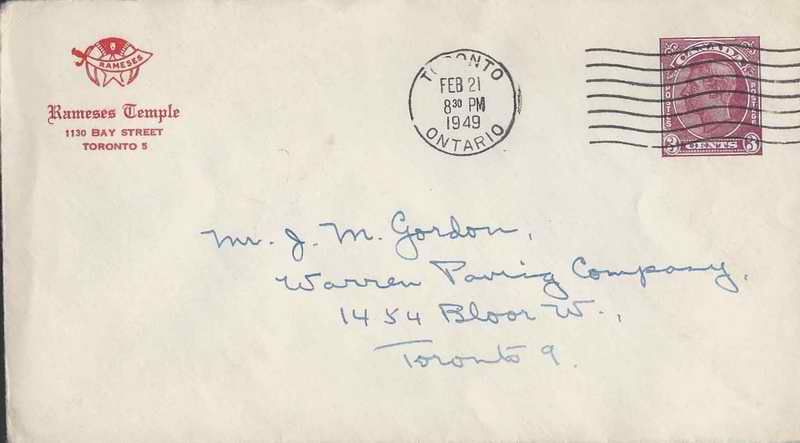 RAMESES
Rameses Temple
1130 BAY STREET
TORONTO 5
TORONTO
FEB 21
8³⁰ PM
1949
ONTARIO
CANADA
POSTES
POSTAGE
3 CENTS 3
Mr. J. M. Gordon,
Warren Paving Company,
1454 Bloor W.,
Toronto 9.